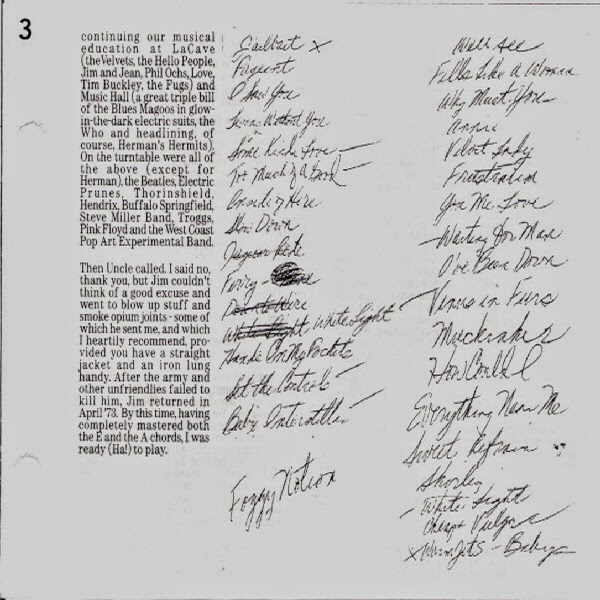 3
continuing our musical
education at LaCave
(the Velvets, the Hello People,
Jim and Jean, Phil Ochs, Love,
Tim Buckley, the Fugs) and
Music Hall (a great triple bill
of the Blues Magoos in glow-
in-the-dark electric suits, the
Who and headlining, of
course, Herman's Hermits).
On the turntable were all of
the above (except for
Herman), the Beatles, Electric
Prunes, Thorinshield,
Hendrix, Buffalo Springfield,
Steve Miller Band, Troggs,
Pink Floyd and the West Coast
Pop Art Experimental Band.
Then Uncle called. I said no,
thank you, but Jim couldn't
think of a good excuse and
went to blow up stuff and
smoke opium joints - some of
which he sent me, and which
I heartily recommend, pro-
vided you have a straight
jacket and an iron lung
handy. After the army and
other unfriendlies failed to
kill him, Jim returned in
April '73. By this time, having
completely mastered both
the E and the A chords, I was
ready (Ha!) to play.
Jailbait x
Pageant
I Saw You
You
Some Kinda Love —
Too Much of A Good —
Here
Slow Down
Jaguar Ride
Ferry -
White Light White Light —
Hands On My Pockets
Set the Controls —
Baby Interstellar —
Foggy Notion
We'll See
Feels Like A Woman
Why Must You
Annie
Velvet Lady
Frustration
Give Me Love
— Waiting For Man
I've Been Down
— Venus in Furs
Muckraker
How Could I
Everything Near Me
Sweet Refrain
Shirley
— White Light
Cheap & Vulgar
x Warm Jets - Baby